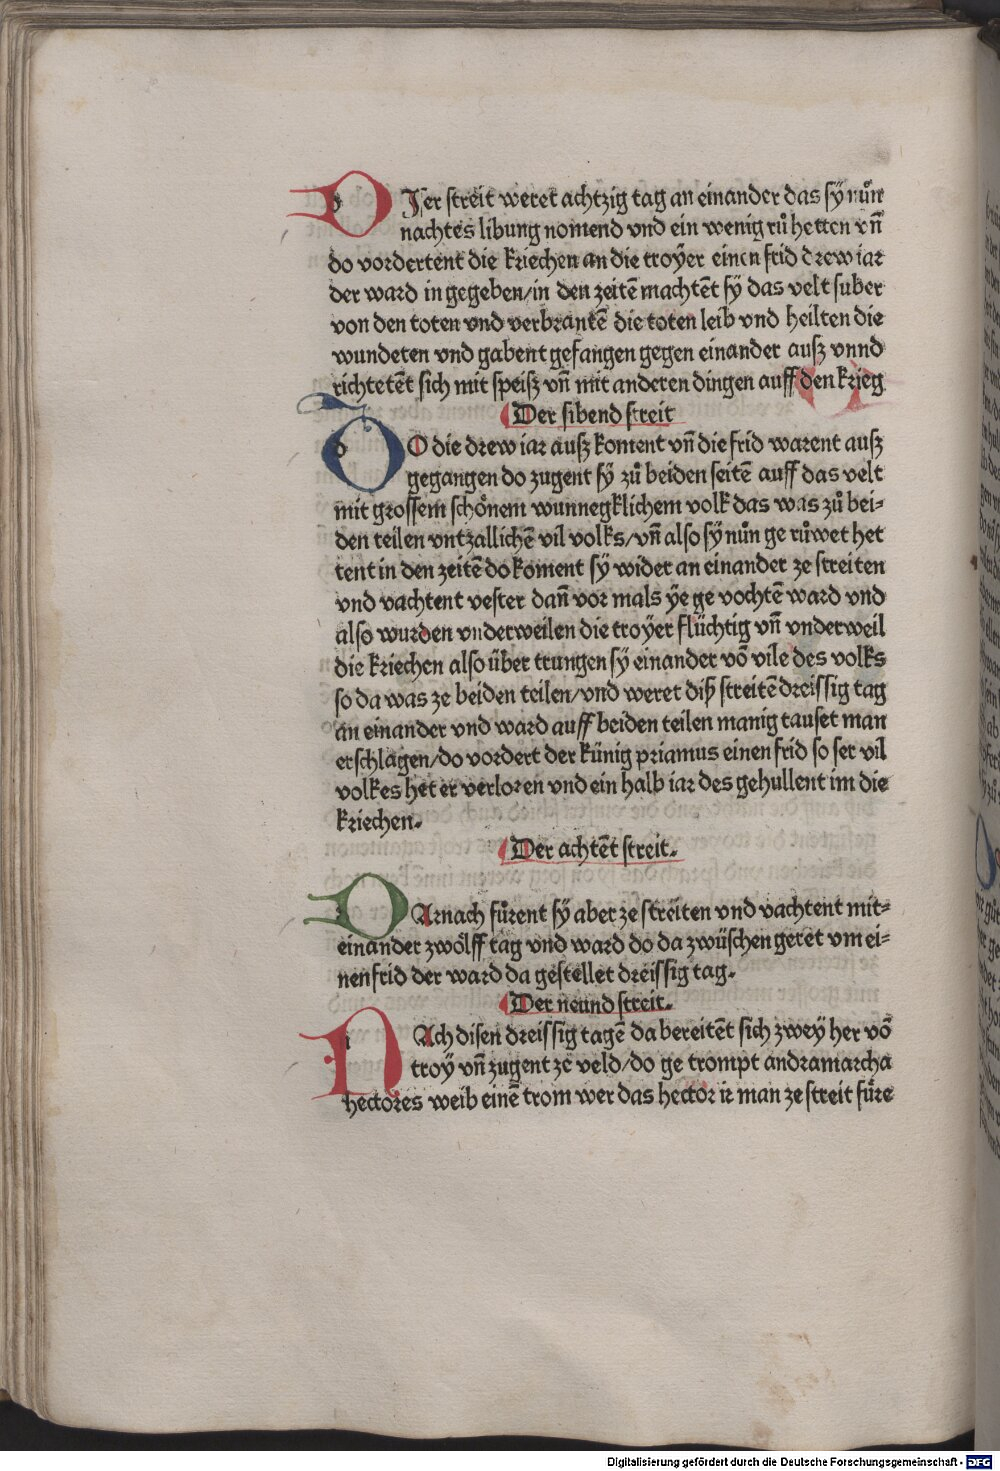 DIser streit weret achtzig tag an einander das sÿ nůn
nachtes libung nomend vnd ein wenig rů hetten vn̄
do vordertent die kriechen an die troÿer einen frid drew iar
der ward in gegeben/in den zeitē machtēt sÿ das velt suber
von den toten vnd verbrantē die toten leib vnd heilten die
wundeten vnd gabent gefangen gegen einander ausz vnnd
richtetēt sich mit speisz vn̄ mit anderen dingen auff den krieg
Der sibend streit
DO die drew iar ausz koment vn̄ die frid warent ausz
gegangen do zugent sÿ zů beiden seitē auff das velt
mit grossem schönem wunnegklichem volk das was zů bei⸗
den teilen vntzallichē vil volks/vn̄ also sÿ nůn ge růwet het
tent in den zeitē do koment sÿ wider an einander ze streiten
vnd vachtent vester dan̄ vor mals ÿe ge vochtē ward vnd
also wurden vnderweilen die troÿer flüchtig vn̄ vnderweil
die kriechen also über trungen sÿ einander vō vile des volks
so da was ze beiden teilen/vnd weret diß streitē dreissig tag
an einander vnd ward auff beiden teilen manig tauset man
erschlagen/do vordert der künig priamus einen frid so ser vil
volkes het er verloren vnd ein halb iar des gehullent im die
kriechen.
Der achtēt streit.
DArnach fůrent sÿ aber ze streiten vnd vachtent mit⸗
einander zwölff tag vnd ward do da zwüschen geret vm ei⸗
nen frid der ward da gestellet dreissig tag.
Der neund streit.
NAch disen dreissig tagē da bereitēt sich zwey her vō
troÿ vn̄ zugent ze veld/do ge trompt andramarcha
hectores weib einē trom wer das hector ir man ze streit fůre
Digitalisierung gefördert durch die Deutsche Forschungsgemeinschaft - DFG